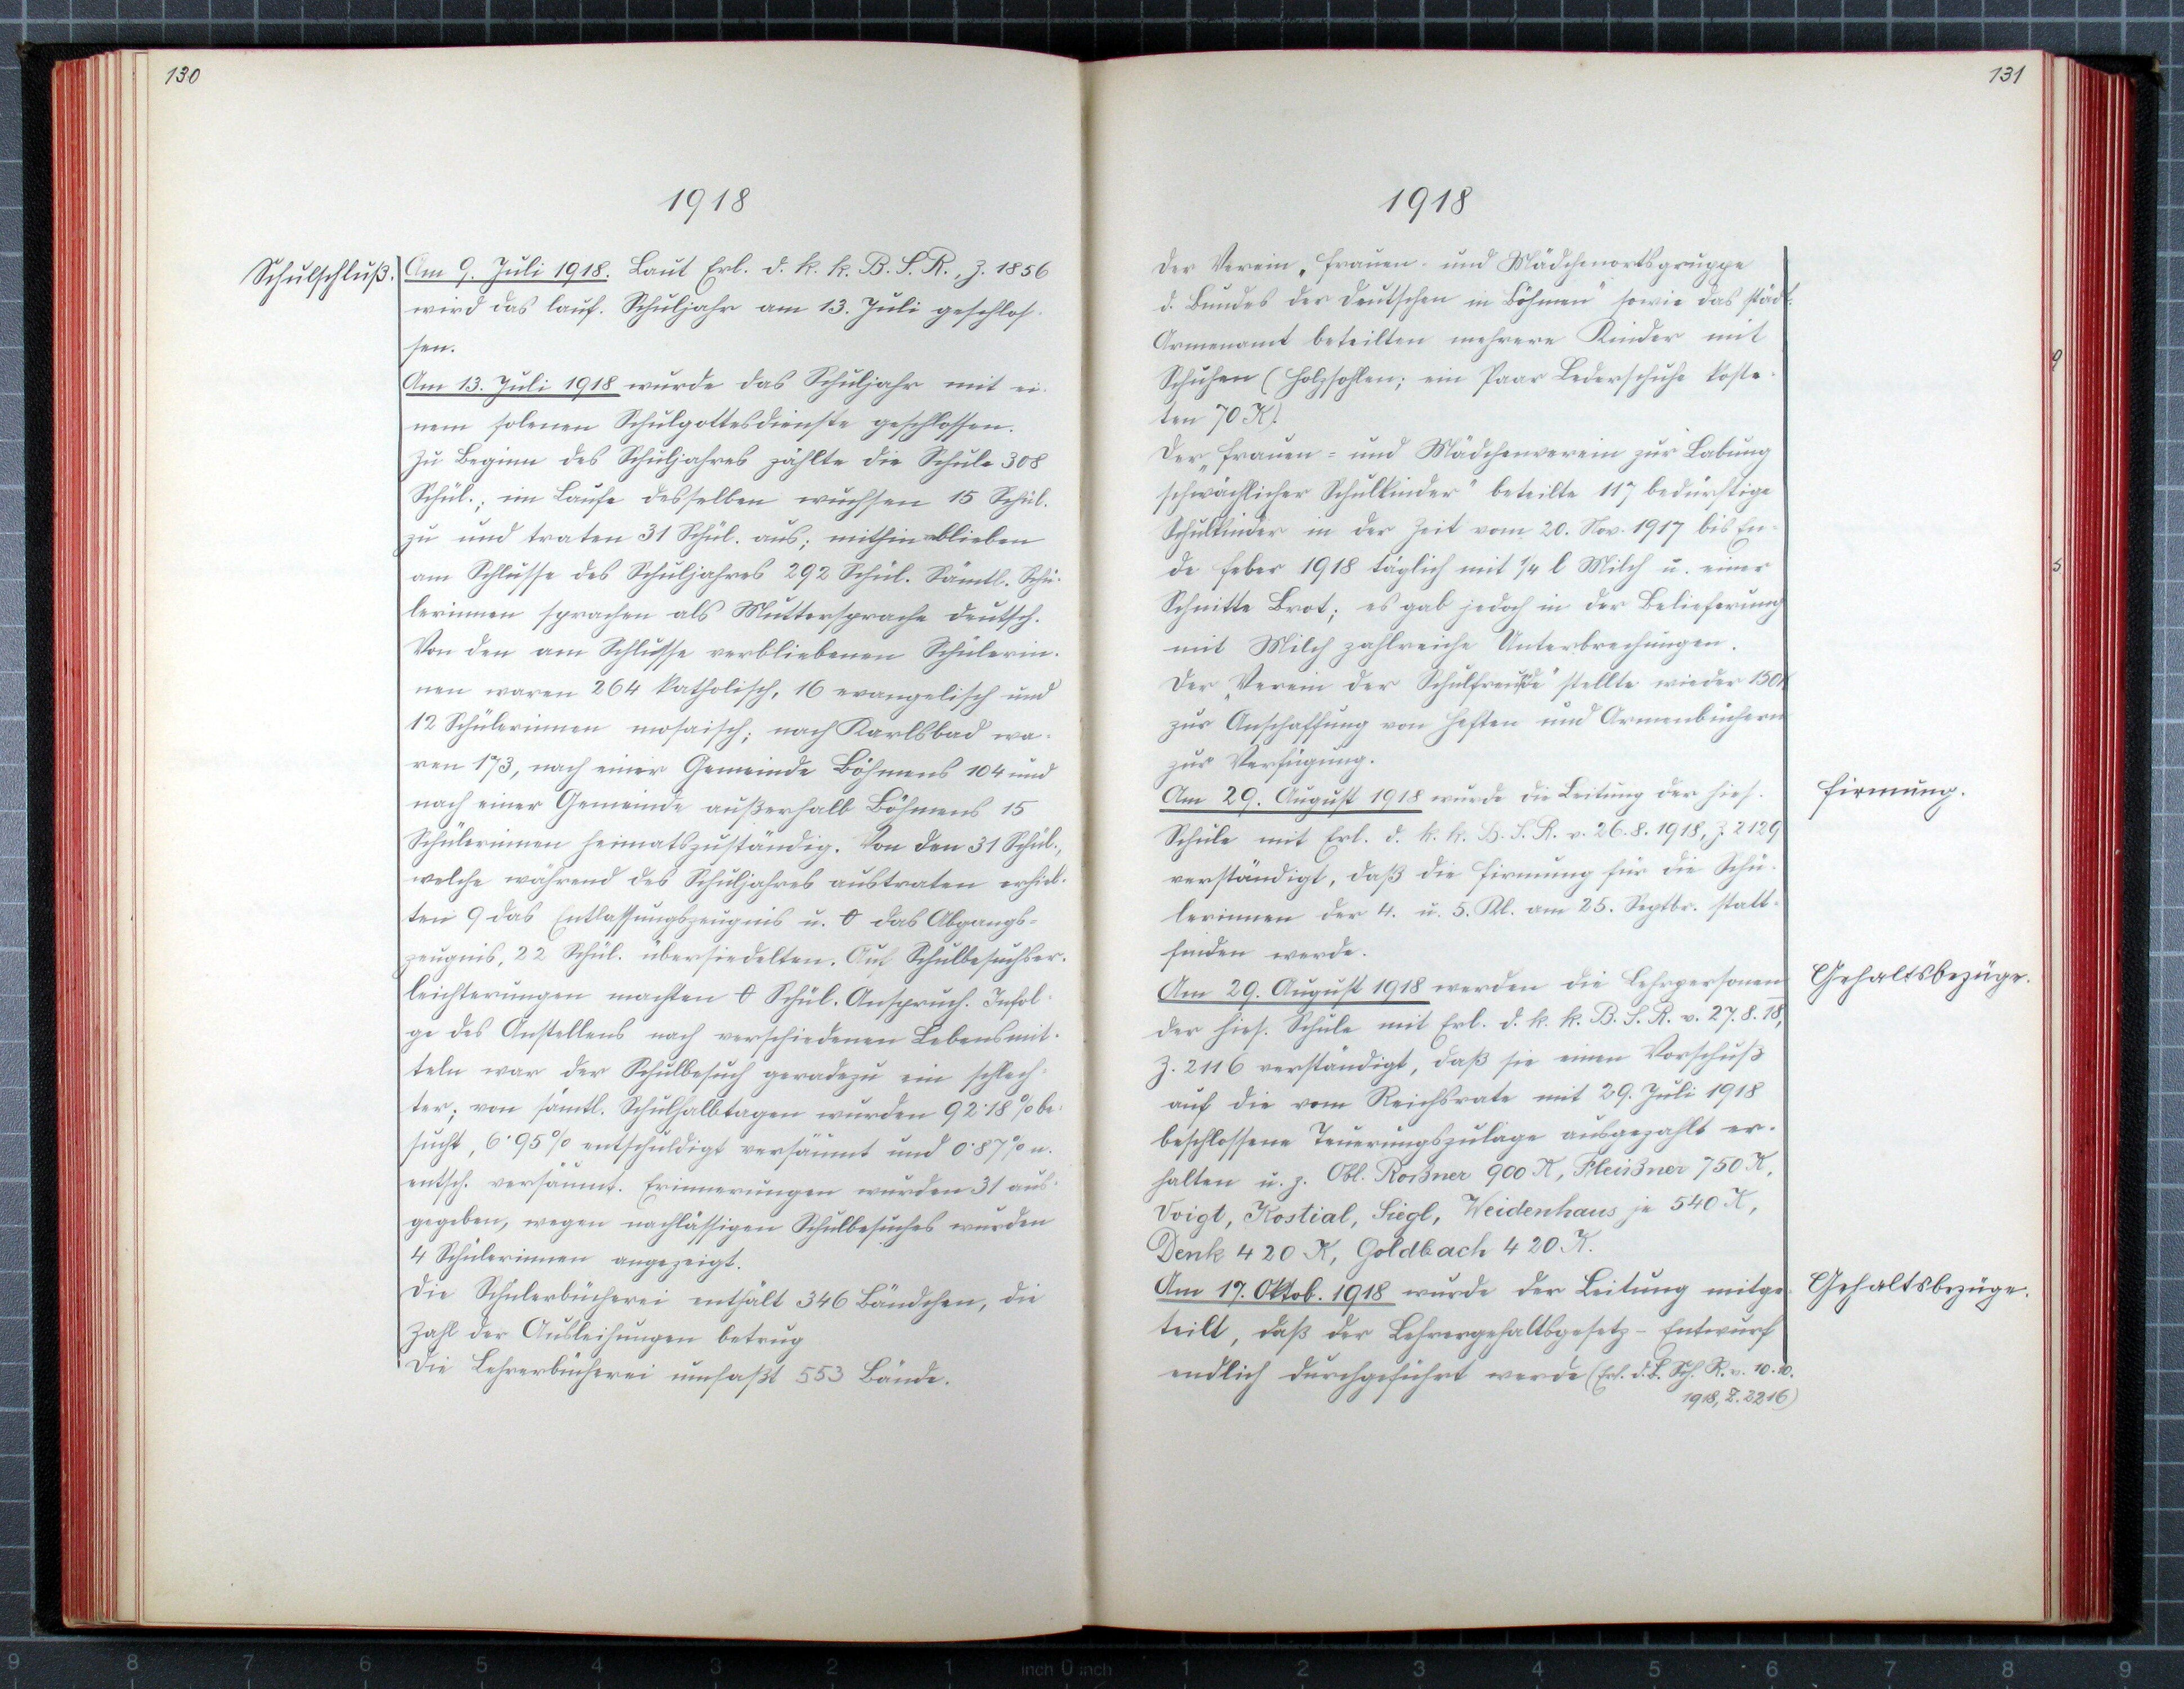 130
1918
Schulschluß.
Am 9. Juli 1918. Laut Erl. d. k. k. B. S. R., Z. 1856
wird das lauf. Schuljahr am 13. Juli geschlos-
sen.
Am 13. Juli 1918 wurde das Schuljahr mit ei-
nem solenen Schulgottesdienste geschlossen.
Zu Beginn des Schuljahres zählte die Schule 308
Schül.; im Laufe desselben wuchsen 15 Schül.
zu und traten 31 Schül. aus; mithin blieben
am Schlusse des Schuljahres 292 Schül. Sämtl. Schü-
lerinnen sprachen als Muttersprache deutsch.
Von den am Schlusse verbliebenen Schülerin-
nen waren 264 katholisch, 16 evangelisch und
12 Schülerinnen mosaisch; nach Karlsbad wa-
ren 173, nach einer Gemeinde Böhmens 104 und
nach einer Gemeinde außerhalb Böhmens 15
Schülerinnen heimatszuständig. Von den 31 Schül.,
welche während des Schuljahres austraten erhiel-
ten 9 das Entlassungszeugnis u. 0 das Abgangs-
zeugnis, 22 Schül. übersiedelten. Auf Schulbesuchser-
leichterungen machten 0 Schül. Anspruch. Infol-
ge des Anstellens nach verschiedenen Lebensmit-
teln war der Schulbesuch geradezu ein schlech-
ter; von sämtl. Schulhalbtagen wurden 92·18% be-
sucht, 6·95% entschuldigt versäumt und 0·87% n.
entsch. versäumt. Erinnerungen wurden 31 aus-
gegeben, wegen nachlässigen Schulbesuches wurden
4 Schülerinnen angezeigt.
Die Schülerbücherei enthält 346 Bändchen, die
Zahl der Ausleihungen betrug
Die Lehrerbücherei umfaßt 553 Bände.
131
1918
Der Verein „Frauen- und Mädchenortsgruppe
d. Bundes der Deutschen in Böhmen" sowie das städt.
Armenamt beteilten mehrere Kinder mit
Schuhen (Holzsohlen; ein Paar Lederschuhe koste-
ten 70 K).
Der „Frauen- und Mädchenverein zur Labung
schwächlicher Schulkinder" beteilte 117 bedürftige
Schulkinder in der Zeit vom 20. Nov. 1917 bis En-
de Feber 1918 täglich mit 1/4 l Milch u. einer
Schnitte Brot; es gab jedoch in der Belieferung
mit Milch zahlreiche Unterbrechungen.
Der „Verein der Schulfreunde" stellte wieder 150 K
zur Anschaffung von Heften und Armenbüchern
zur Verfügung.
Am 29. August 1918 wurde die Leitung der hies.
Firmung.
Schule mit Erl. d. k. k. B. S. R. v. 26. 8. 1918, Z. 2129
verständigt, daß die Firmung für die Schü-
lerinnen der 4. u. 5. Kl. am 25. Septbr. statt-
finden werde.
Am 29. August 1918 werden die Lehrpersonen
Gehaltsbezüge.
der hies. Schule mit Erl. d. k. k. B. S. R. v. 27. 8. 18,
Z. 2116 verständigt, daß sie einen Vorschuß
auf die vom Reichsrate mit 29. Juli 1918
beschlossene Teuerungszulage ausgezahlt er-
halten u. z. Obl. Roßner 900 K, Fleißner 750 K,
Voigt, Kostial, Siegl, Weidenhaus je 540 K,
Denk 420 K, Goldbach 420 K.
Am 17. Oktob. 1918 wurde der Leitung mitge-
Gehaltsbezüge.
teilt, daß der Lehrergehaltsgesetz-Entwurf
endlich durchgeführt werde (Erl. d. B. Sch. R. v. 10. 10.
1918, Z. 2216)
9 8 7 6 5 4 3 2 1 inch 0 inch 1 2 3 4 5 6 7 8 9